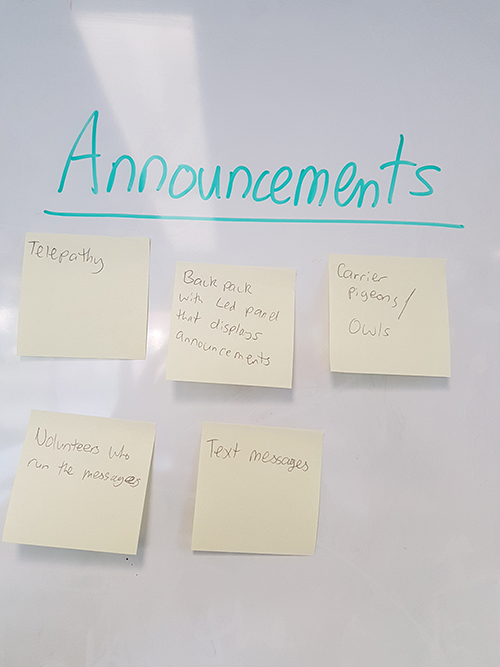 Announcements
Telepathy
Back pack
with Led panel
that displays
announcements
Carrier
pigeons/
Owls
Volunteers who
run the messages
Text messages